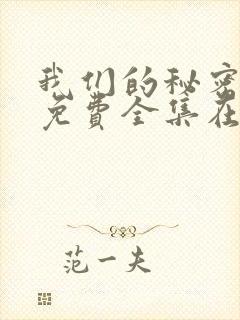 我们的秘密
免费全集在
范一夫